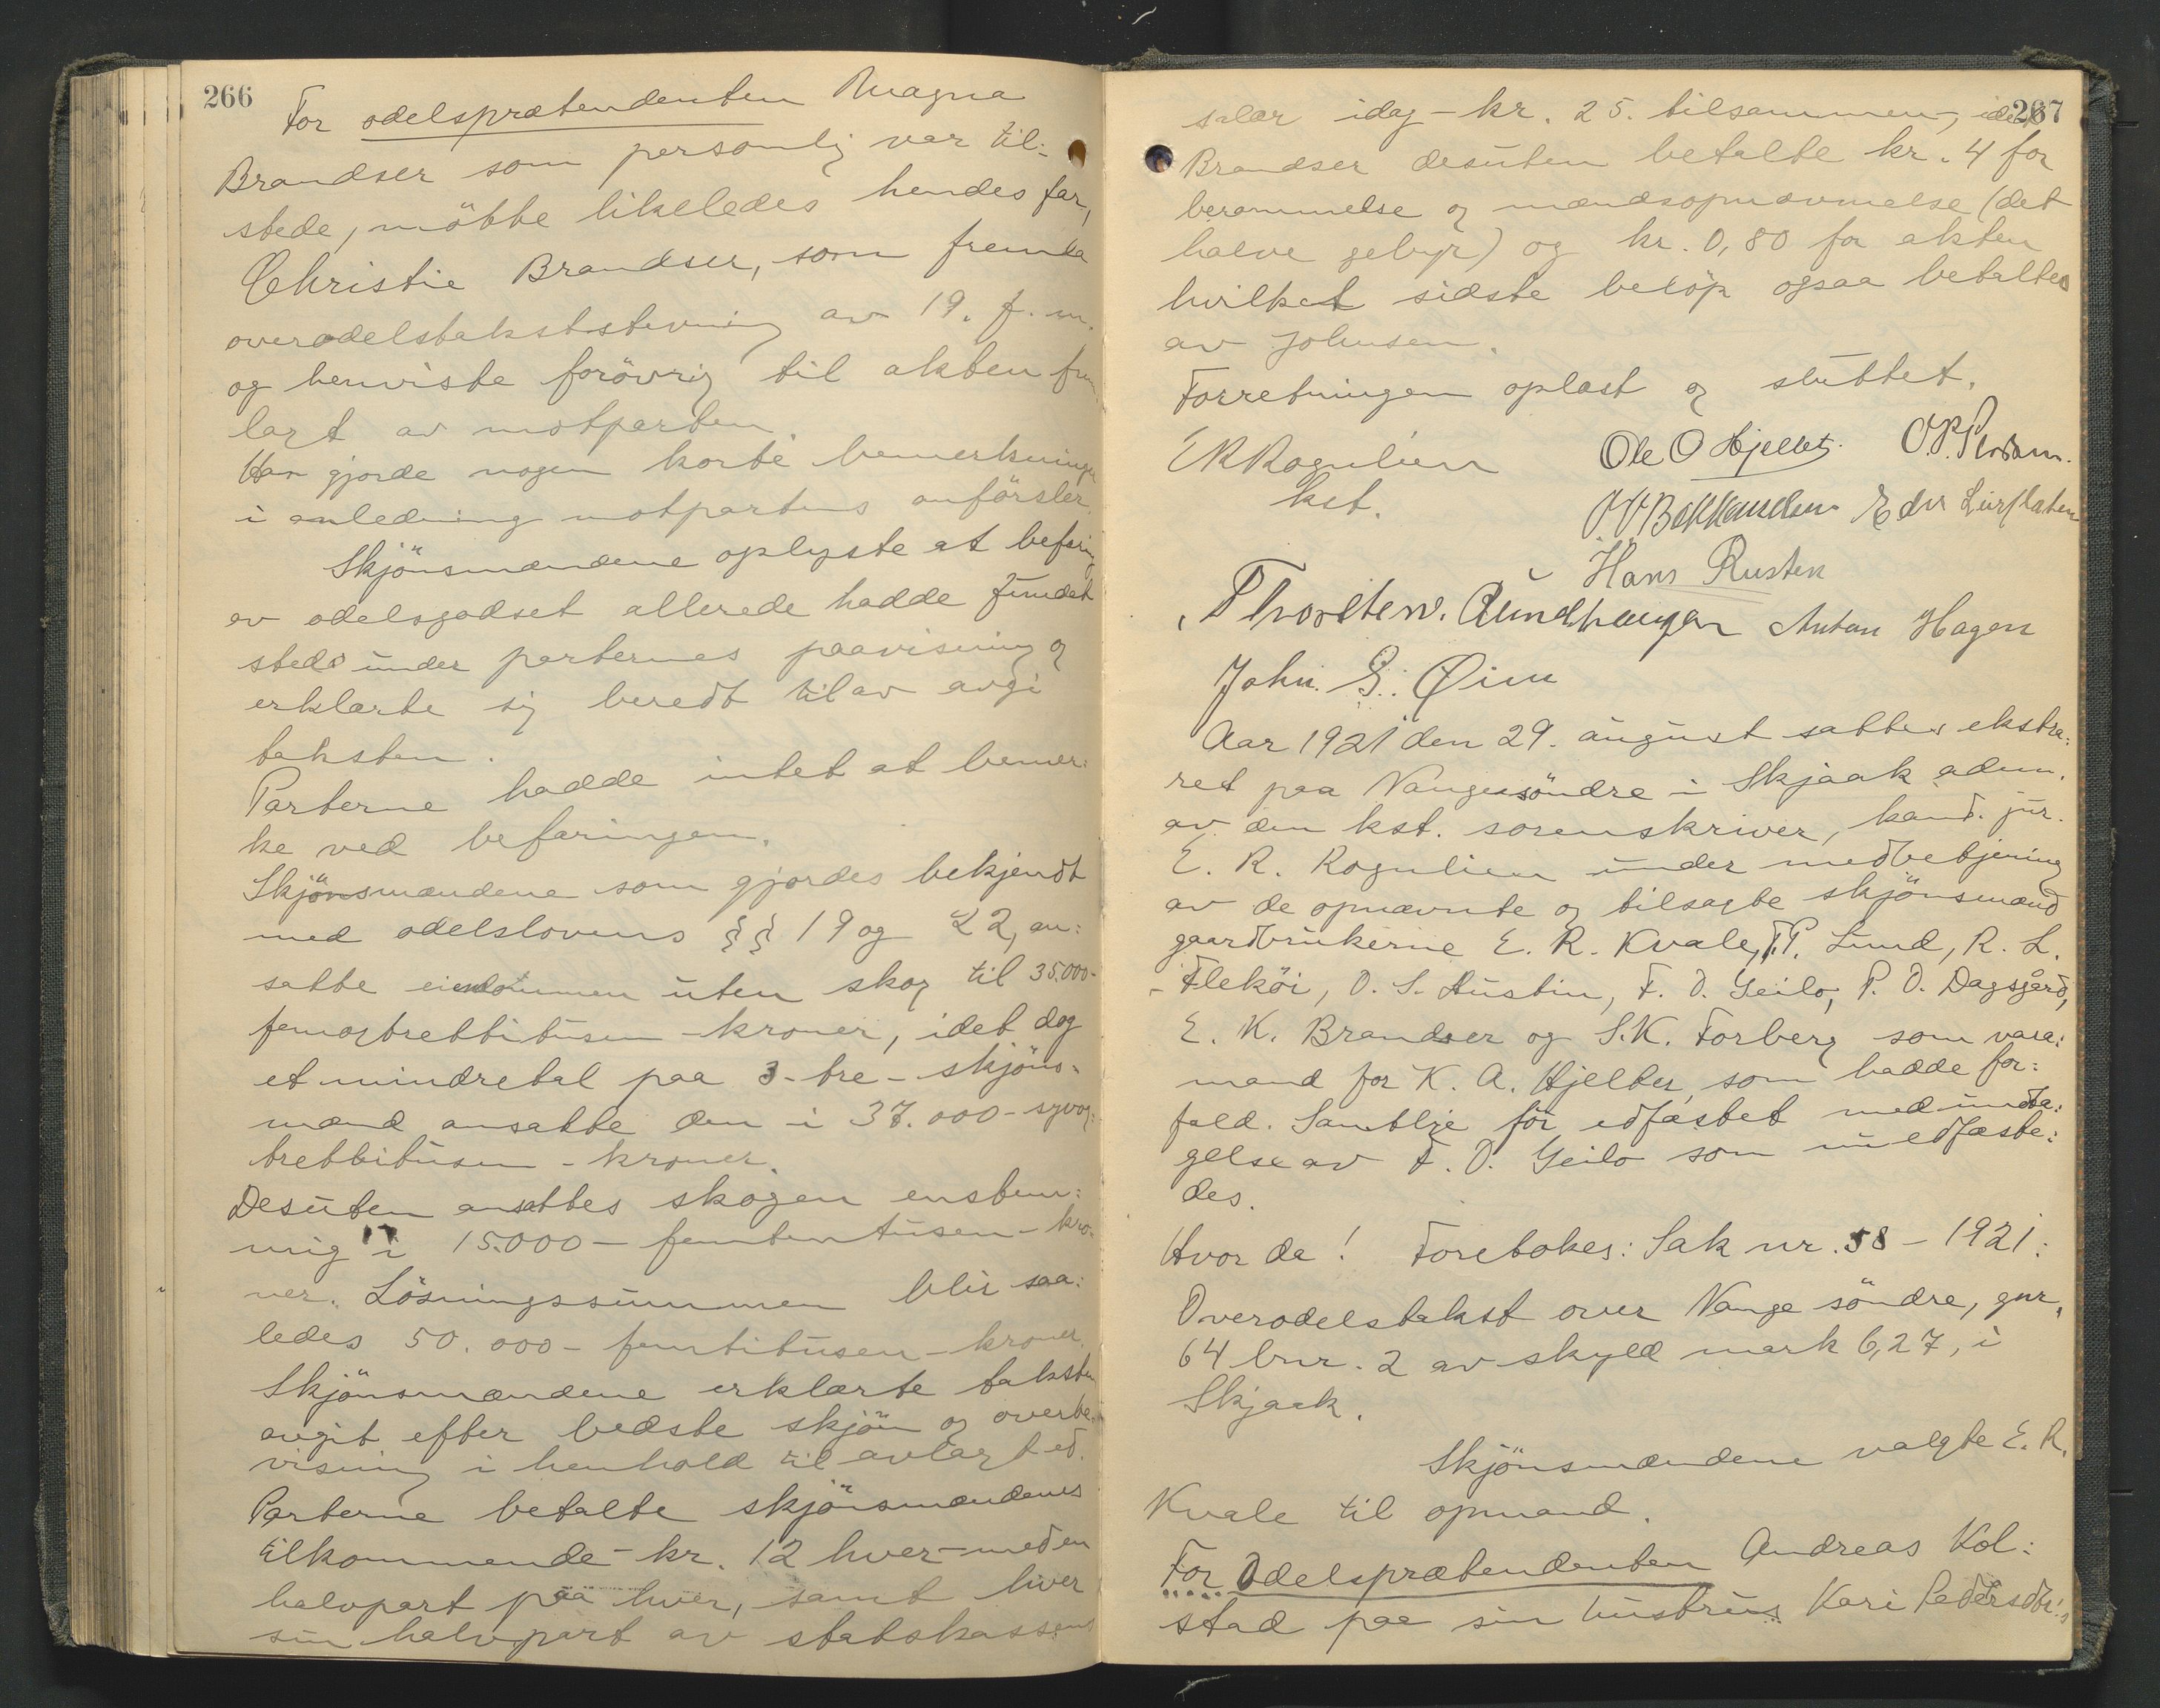 266
For odelsprætendenten Magna
Brandser som personlig var til-
stede, mötte likeledes hendes far,
Christie Brandser, som fremla
overodelstakststevning av 19. f. m.
og henviste forövrig til akten frem
lagt av motparten.
Han gjorde nogen korte bemerkninger
i anledning motpartens anförsler.
Skjönsmændene oplyste at befaring
av odelsgodset allerede hadde fundet
sted under parternes paavisning og
erklærte sig beredt til av avgi
taksten.
Parterne hadde intet at bemer:
ke ved befaringen.
Skjönsmændene som gjordes bekjendt
med odelslovens §§ 19 og 22, an:
satte eiendommen uten skog til 35.000-
femogtrettitusen - kroner, idet dog
et mindretal paa 3 - tre - skjöns-
mænd ansatte den i 37.000 - syvog:
trettitusen - kroner.
Desuten ansattes skogen enstem:
mig i 15.000 - femtentusen - kro-
ner. Lösningssummen blir saa:
ledes 50.000 - femtitusen - kroner.
Skjönsmændene erklærte taksten
avgit efter bedste skjön og overbe-
visning i henhold til avlagt ed.
Parterne betalte skjönsmændenes
tilkommende - kr. 12 hver - med en
halvpart paa hver, samt hver
sin halvpart av statskassens
267
salær idag - kr. 25. tilsammen, idet
Brandser desuten betalte kr. 4 for
berammelse og mandsopnævnelse (det
halve gebyr) og kr. 0,80 for akten
hvilket sidste belöp ogsaa betaltes
av Johnsen.
Forretningen oplæst og sluttet.
E R Rognlien Ole O Hjeltet. O.P.
kst. Hans Rusten
Thorsten. Rundhaugen Anton Hagen
John. G. Øien
Aar 1921 den 29. august sattes ekstra:
ret paa Nange söndre i Skjaak adm.
av den kst. sorenskriver, kand. jur.
E. R. Rognlien under medbetjening
av de opnævnte og tilsagte skjönsmænd
gaardbrukerne E. R. Kvale, T.P. Lund, R. L.
Fleköi, O. S. Hustin, F. O. Geilo, P. O. Dagsgård,
E. K. Brandser og S.K. Forberg som vara:
mand for K. A. Hjelter, som hadde for:
fald. Samtlige för edfæstet med undta:
gelse av F. O. Geilo som nu edfæste:
des.
Hvor da! Foretokes: Sak nr. 58 - 1921:
Overodelstakst over Nange söndre, gnr.
64 bnr. 2 av skyld mark 6,27, i
Skjaak.
Skjönsmændene valgte E. R.
Kvale til opmand.
For Odelsprætendenten Andreas Kol:
stad paa sin hustrus Kari Pedersdtr.'s